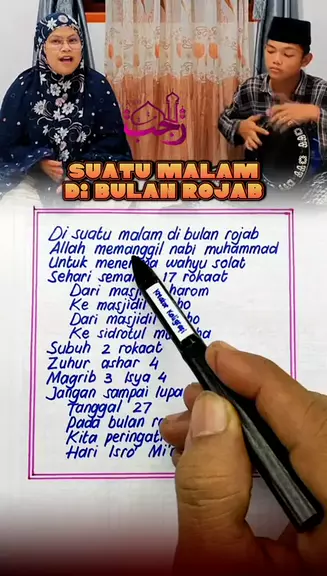 رجب
SUATU MALAM
Di BULAN ROJAB
Di suatu malam di bulan rojab
Allah memanggil nabi muhammad
Untuk mene wahyu solat
Sehari sema 17 rokaat
Dari masj harom
Ke masjidil ho
Dari masjidi ho
Ke sidrotul m ha
Subuh 2 rokaat
Zuhur ashar 4
Magrib 3 isya 4
Jangan sampai lupa
Tanggal 27
Pada bulan ro
Kita peringat
Hari Isro Mi'r